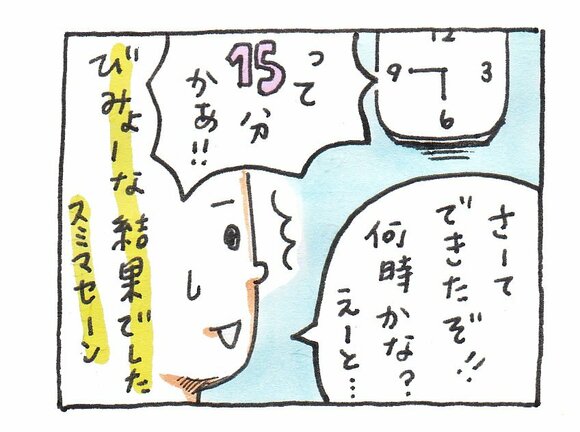 さーて
できたぞ!!
何時かな?
えーと…
12
9
3
6
って
15分
かあ!!
びみょーな結果でした
スミマセーン